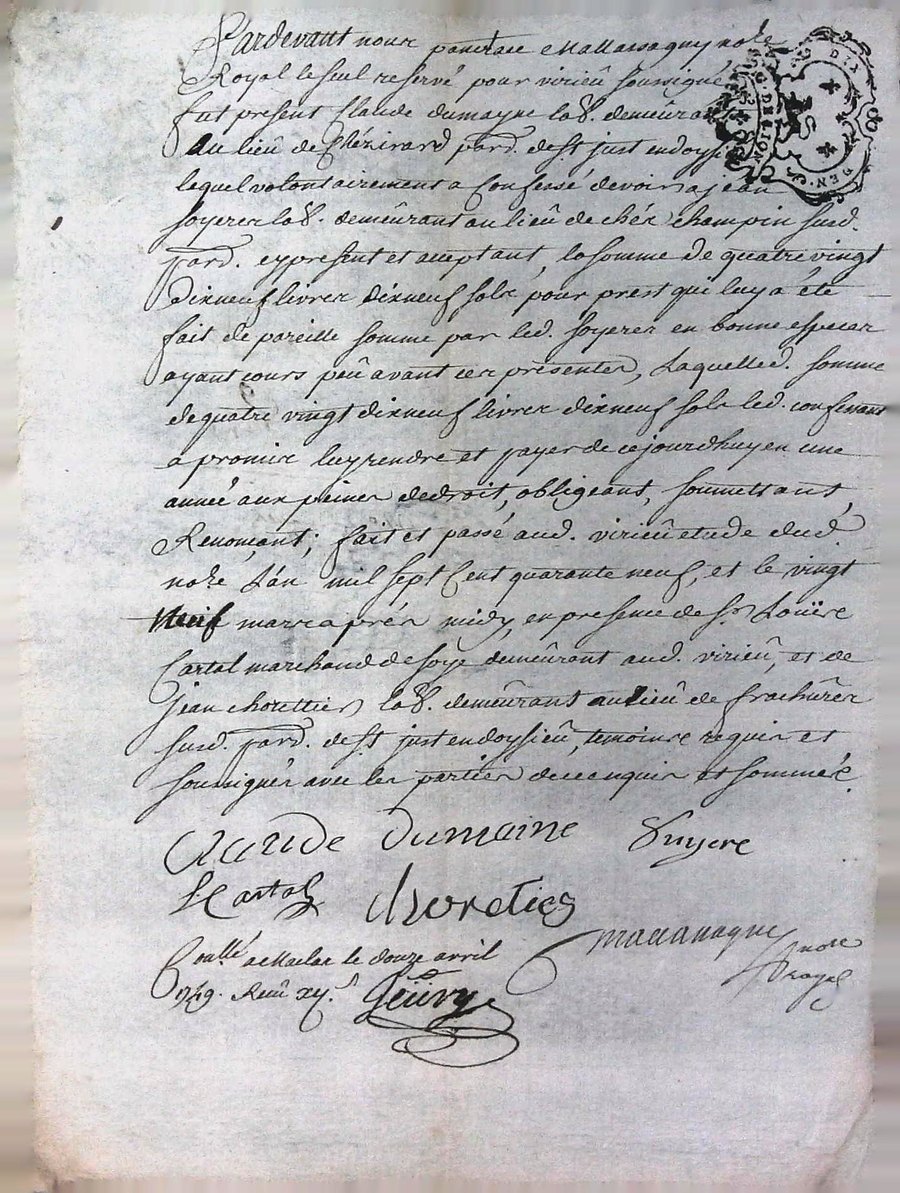 Pardevant nous pancrace Mallassagny nore
Royal le seul reservé pour virieû soussigné
fut present Claude dumayne lab. demeûrant
au lieû de Chézirard parr. de st just en doysieu
lequel volontairement a Confessé devoir a jean
soyerer lab. demeûrant au lieû de chéz Champin susd.
parr. cy present et aceptant, la somme de quatre vingt
dixneuf livres dixneuf sols pour prest qui luy a été
fait de pareille somme par led. soyerer en bonnes especes
ayant cours peû avant ces présentes, Laquelle d. somme
de quatre vingt dixneuf livres dixneuf sols led. confessant
a promis luy rendre et payer de ce jourdhuy en une
année aux peines de droit, obligeant, soumettant,
Renonçant; fait et passé aud. virieû etude dud.
nore L'an mil sept Cent quarante neuf, et le vingt
neuf mars aprés midy, en presence de sr. Loüis
Cartal marchand de soye demeûrant aud. virieû, et de
jean chorettier lab. demeûrant au lieû de frachûrer
susd. parr. de st just en doysieû, temoins requis et
soussignés avec les parties de ce enquis et sommés.
CLAUDE Dumaine Suyere
L. Cartal choretier
Mallassagny nore
royal
Conllé a Maclas le douze avril
1749. Reçu xij. s
DIX
DEN.
G. DE LION